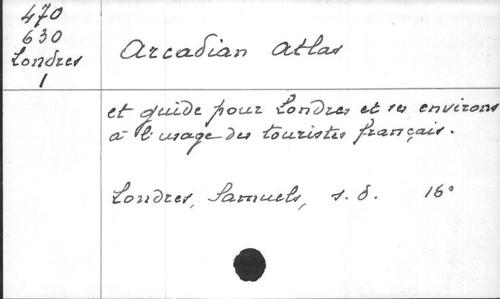 470
630
Londres
1
Arcadian Atlas
et guide pour Londres et ses environs
à l'usage des touristes français.
Londres, Samuels, s. d. 16°